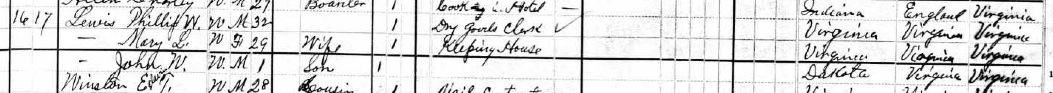 W M 29 Boarder 1 Cook at Hotel — Indiana England Virginia
16 17 Lewis Phillip W. W M 32 1 Dry Goods Clerk ✓ Virginia Virginia Virginia
— Mary L. W F 29 Wife 1 Keeping House Virginia Virginia Virginia
— John W. W M 1 Son 1 Dakota Virginia Virginia
Winston W M 28 Cousin 1